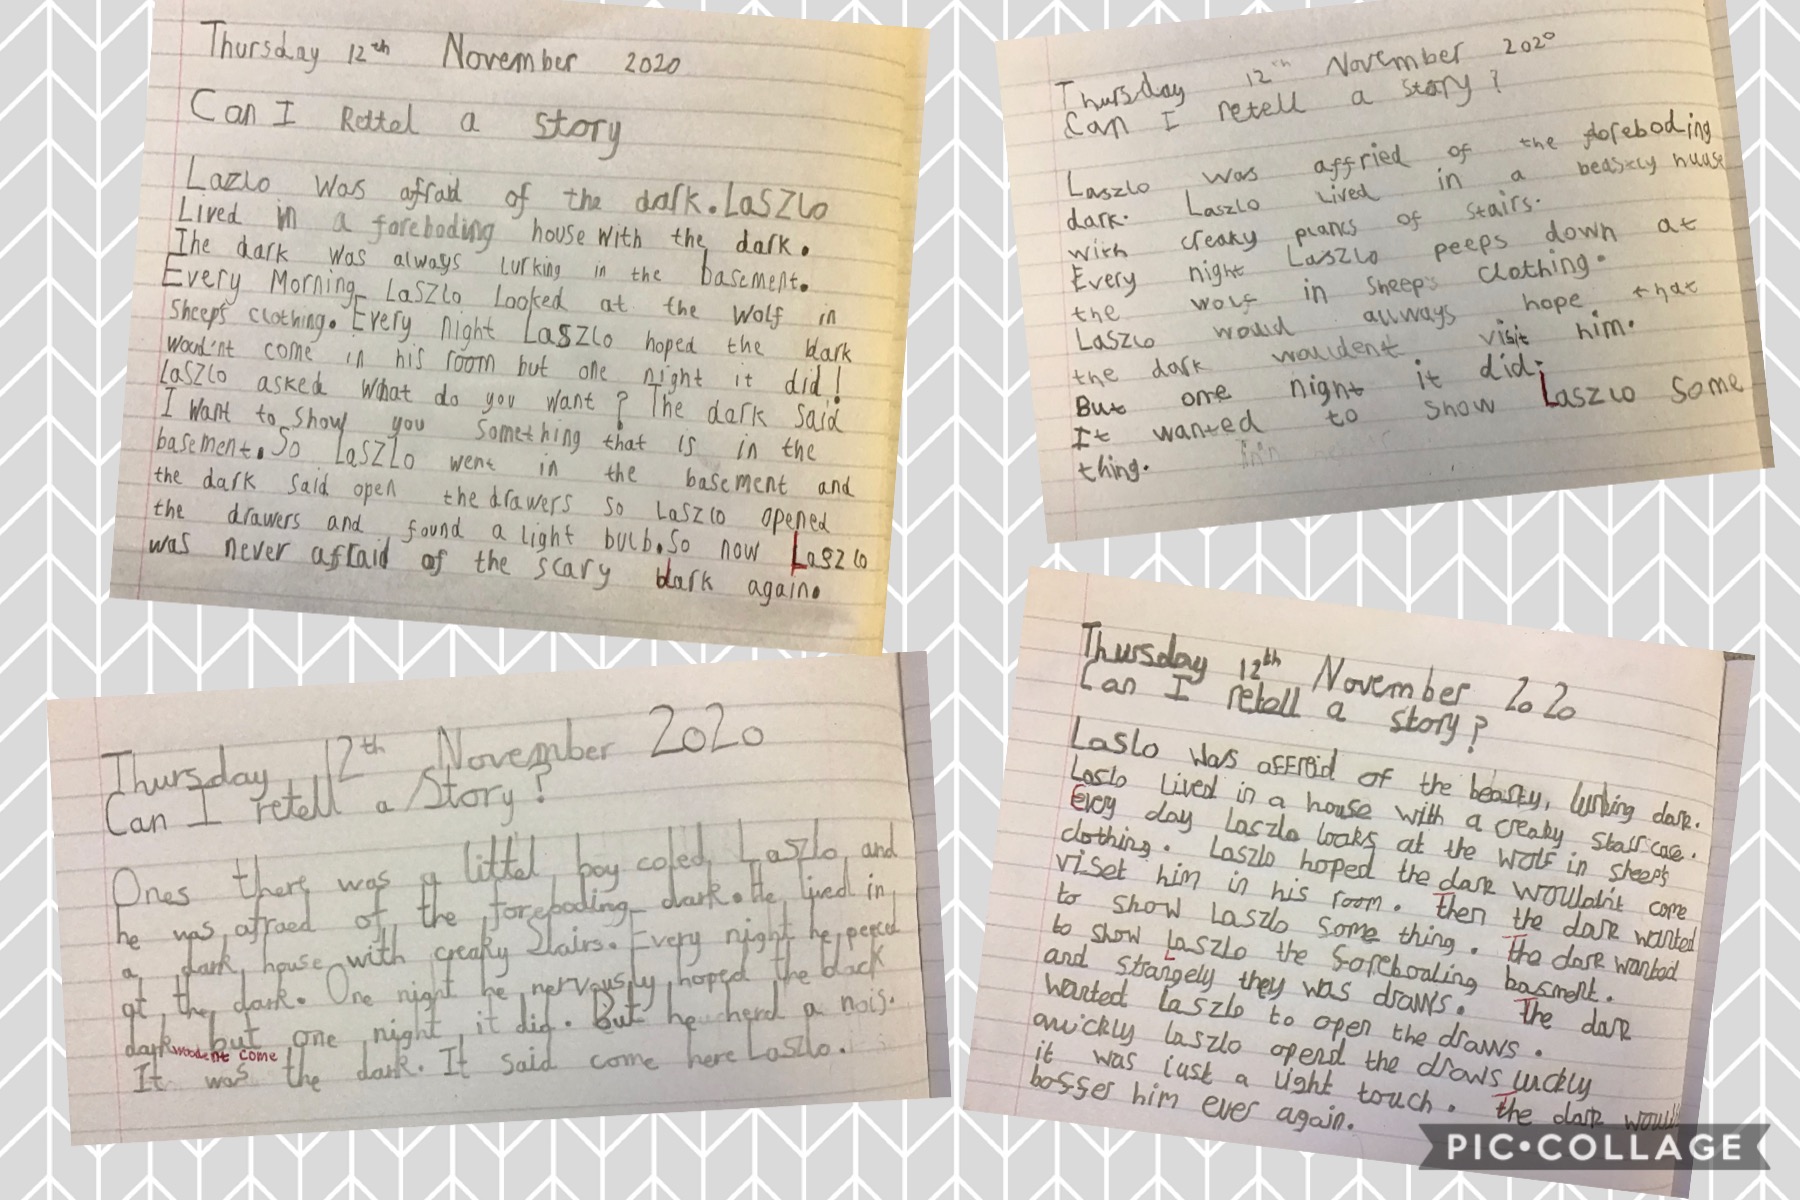 Thursday 12th November 2020
Can I Rettel a story
Lazlo was afraid of the dark. LaSZlo
Lived in a foreboding house with the dark.
The dark was always lurking in the basement.
Every Morning LaSZlo Looked at the Wolf in
sheep's clothing. Every night Laszlo hoped the dark
would'nt come in his room but one night it did!
LaSZlo asked what do you want? The dark said
I want to show you something that is in the
basement. So LaSZlo went in the basement and
the dark said open the drawers so Laszlo opened
the drawers and found a light bulb. So now Laszlo
was never afraid of the scary dark again.
Thursday 12th November 2020
Can I retell a story?
Laszlo was affried of the foreboding
dark. Laszlo lived in a beastly huuse
with creaky plancs of stairs.
Every night Laszlo peeps down at
the wolf in sheep's clothing.
Laszlo would allways hope that
the dark wouldent visit him.
But one night it did;
It wanted to show Laszlo some
thing.
Thursday 12th November 2020
Can I retell a Story?
Ones there was a littel boy coled Laszlo and
he was afraed of the foreboding dark. He lived in
a dark house with creaky Stairs. Every night he peeced
at the dark. One night he nervously hoped the black
dark woodent come but one night it did. But he herd a nois.
It was the dark. It said come here Laszlo.
Thursday 12th November 2020
Can I retell a story?
Laslo was affraid of the beasty, lurking dark.
Laslo Lived in a house with a creaky staircase.
Every day Laszlo looks at the wolf in sheep's
clothing. Laszlo hoped the dark wouldn't come
viset him in his room. Then the dark wanted
to show Laszlo some thing. The dark wanted
to show Laszlo the foreboding basment.
and strangely they was draws. The dark
wanted Laszlo to open the draws.
quickly Laszlo opend the draws luckly
it was just a light touch. The dark would
bosser him ever again.
PIC•COLLAGE